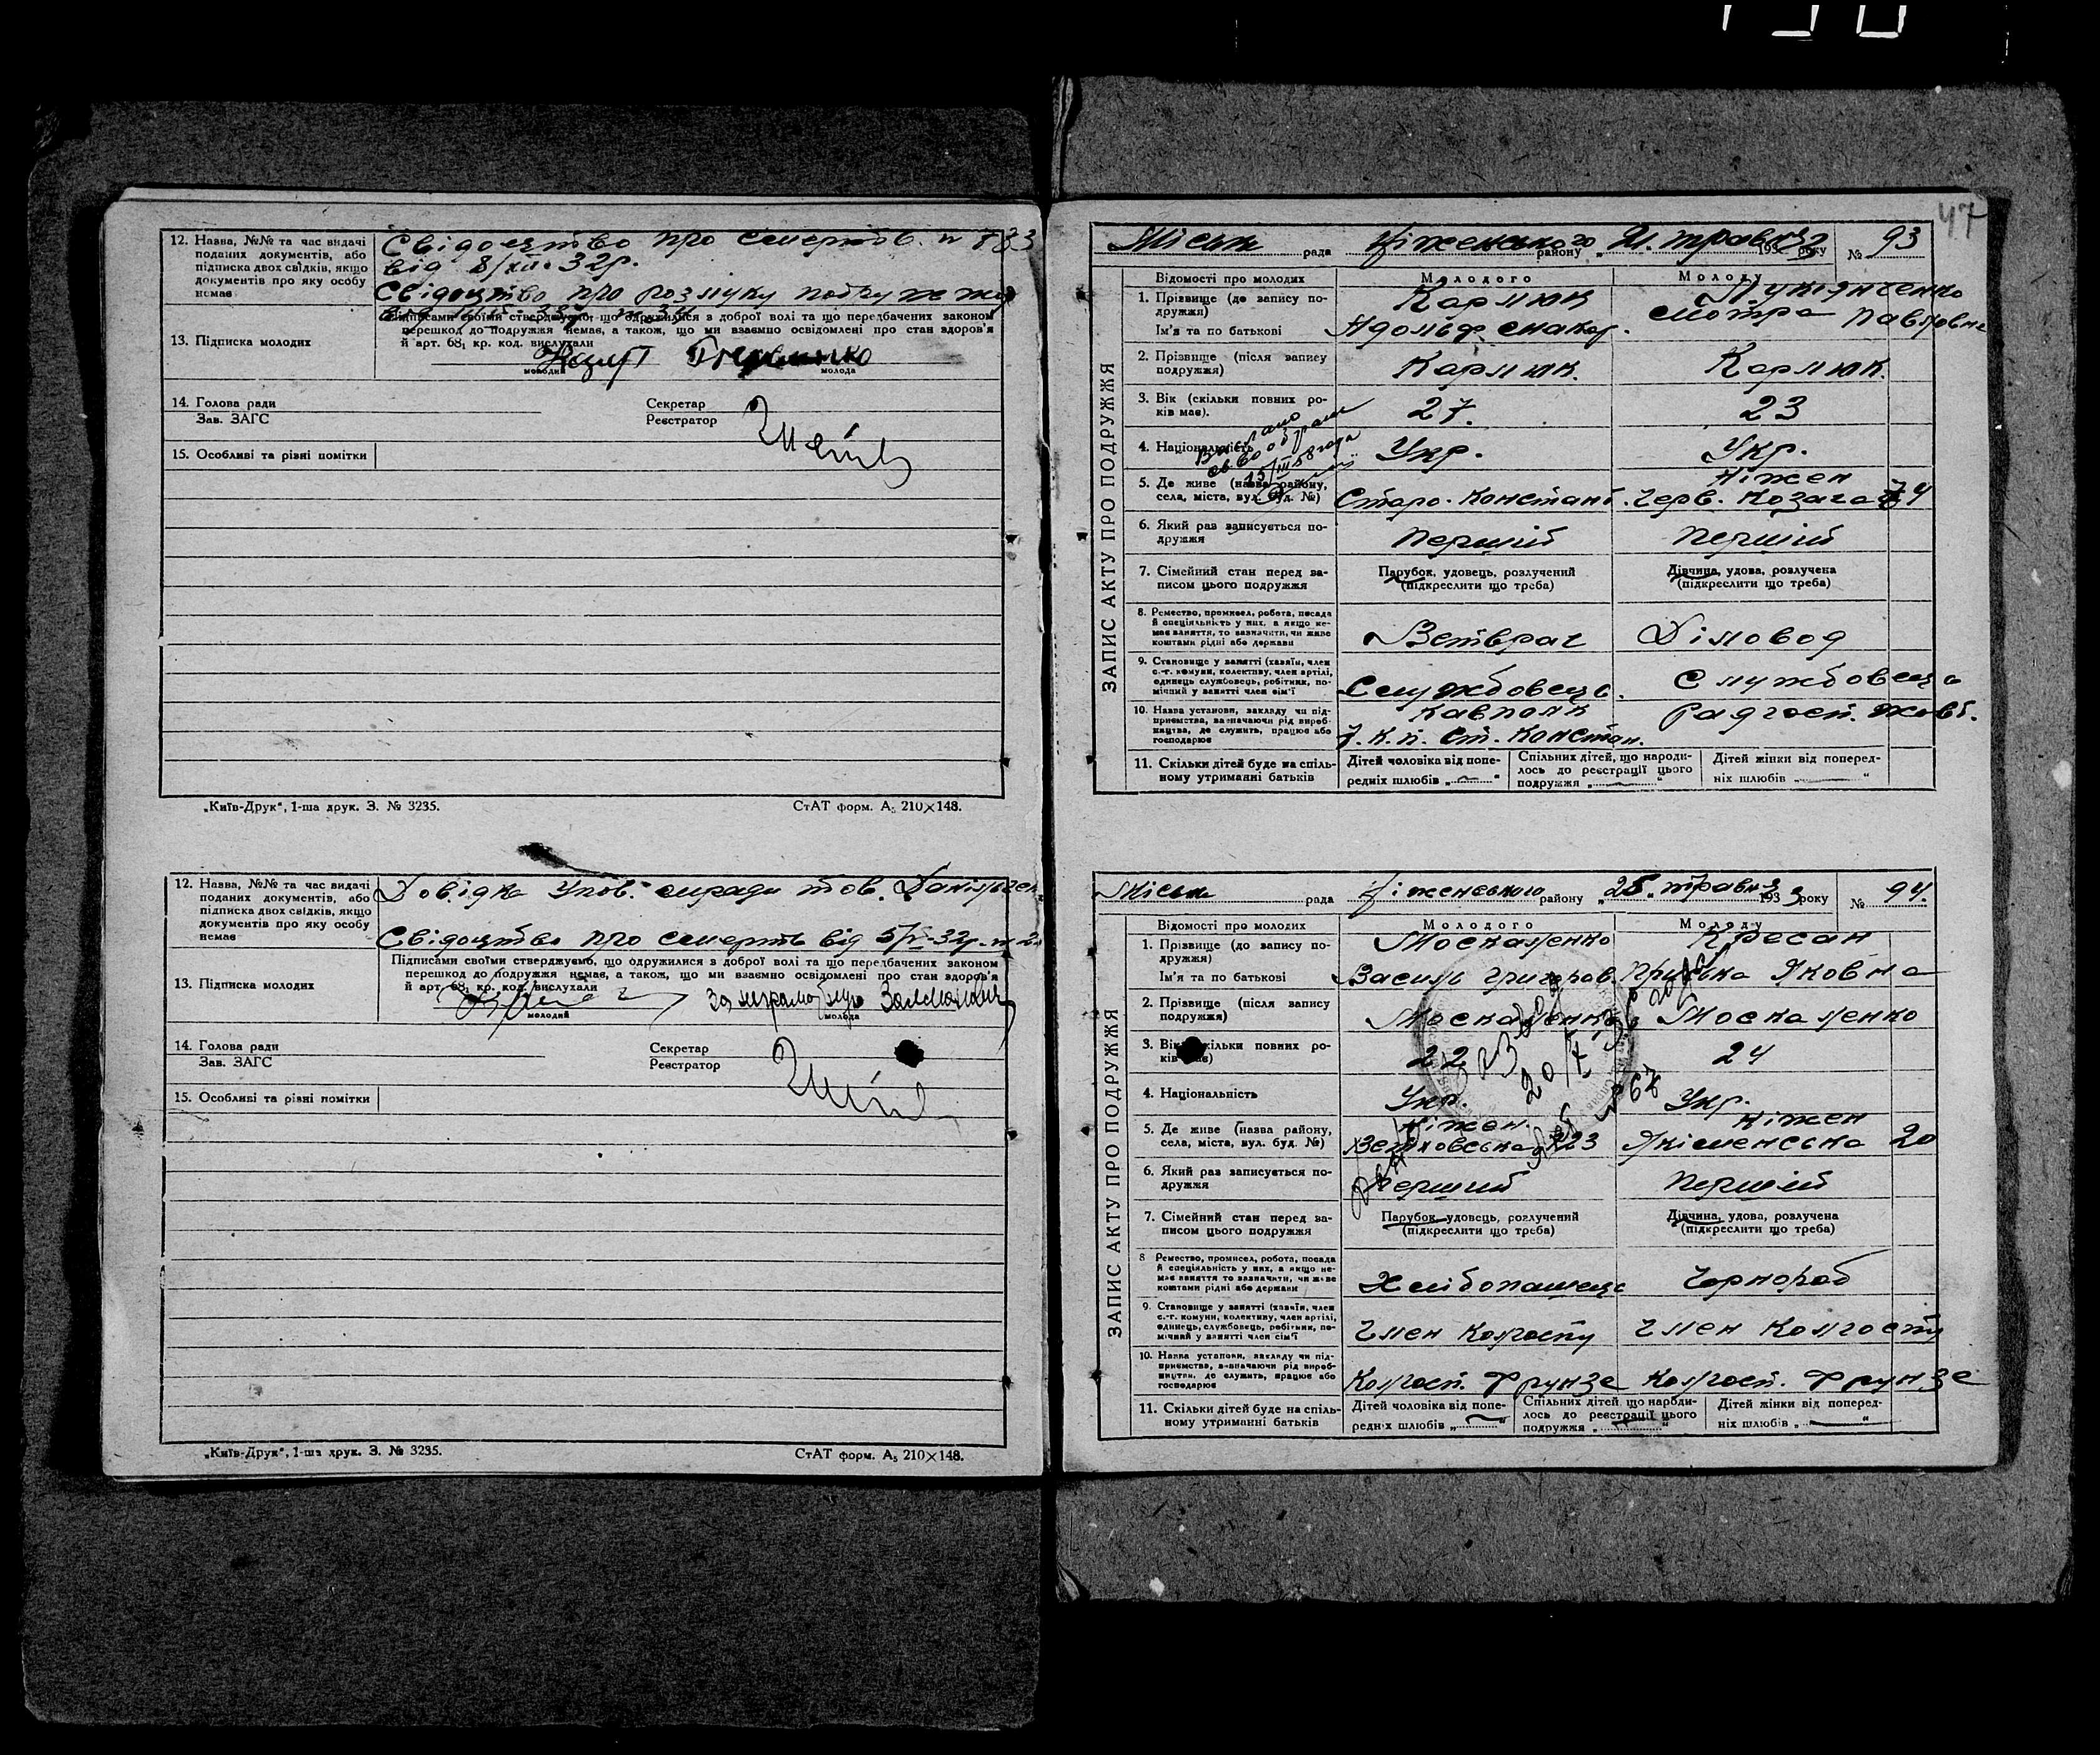 47
12. Назва, №№ та час видачі
поданих документів, або
підписка двох свідків, якщо
документів про яку особу
немає
Свідоцтво про смерть
від 8/XII-32р.
Свідоцтво про розлуку
Підписами своїми стверджуємо, що одружилися з доброї волі та що передбачених законом
перешкод до подружжя немає, а також, що ми взаємно освідомлені про стан здоров'я
й арт. 68₁ кр. код. вислухали
13. Підписка молодих
молодий
молода
14. Голова ради
Зав. ЗАГС
Секретар
Реєстратор
15. Особливі та різні помітки
„Київ-Друк“, 1-ша друк. З. № 3235.
СтАТ форм. А₅ 210×148.
12. Назва, №№ та час видачі
поданих документів, або
підписка двох свідків, якщо
документів про яку особу
немає
Довідка Упов. тов.
Свідоцтво про смерть від
Підписами своїми стверджуємо, що одружилися з доброї волі та що передбачених законом
перешкод до подружжя немає, а також, що ми взаємно освідомлені про стан здоров'я
й арт. 68₁ кр. код. вислухали
13. Підписка молодих
молодий
молода
14. Голова ради
Зав. ЗАГС
Секретар
Реєстратор
15. Особливі та різні помітки
„Київ-Друк“, 1-ша друк. З. № 3235.
СтАТ форм. А₅ 210×148.
ЗАПИС АКТУ ПРО ПОДРУЖЖЯ
Міськ рада Ніженського району 193 року № 93
Відомості про молодих
Молодого
Молоду
1. Прізвище (до запису подружжя)
Ім'я та по батькові
Кармюк
Адольф Макар.
Мотря Павловна
2. Прізвище (після запису
подружжя)
Кармюк.
Кармюк.
3. Вік (скільки повних ро-
ків має).
27.
23
4. Національність
Укр.
Укр.
5. Де живе (назва району,
села, міста, вул. буд. №)
Старо-Констант.
Ніжен
Черв. Козача
6. Який раз записується по-
дружжя
Перший
Перший
7. Сімейний стан перед за-
писом цього подружжя
Парубок, удовець, розлучений
(підкреслити що треба)
Дівчина, удова, розлучена
(підкреслити що треба)
8. Ремество, промисел, робота, посада
й спеціяльність у них, а якщо не-
має заняття, то зазначити, чи живе
коштами рідні або держави
Ветврач
Діловод
9. Становище у занятті (хазяїн, член
с.-г. комуни, колективу, член артілі,
одинець службовець, робітник, по-
мічний у занятті член сім'ї
Службовець.
Службовець
10. Назва установи, закладу чи під-
приємства, зазначаючи рід вироб-
ництва, де служить, працює або
господарює
Кавполк
Ст. Констан.
Радгосп. Жовт.
11. Скільки дітей буде на спіль-
ному утриманні батьків
Дітей чоловіка від попе-
редніх шлюбів „ “
Спільних дітей, що народи-
лось до реєстрації цього
подружжя „ “
Дітей жінки від поперед-
ніх шлюбів „ “
ЗАПИС АКТУ ПРО ПОДРУЖЖЯ
Міськ рада Ніженського району 1933 року № 94.
Відомості про молодих
Молодого
Молоду
1. Прізвище (до запису по-
дружжя)
Ім'я та по батькові
Москаленко
Василь Григоров.
Кресан
Яковна
2. Прізвище (після запису
подружжя)
Москаленко
Москаленко
3. Вік (скільки повних ро-
ків має)
22
24
4. Національність
Укр.
Укр.
5. Де живе (назва району,
села, міста, вул. буд. №)
Ніжен.
Ніжен
20
6. Який раз записується по-
дружжя
Перший
Перший
7. Сімейний стан перед за-
писом цього подружжя
Парубок, удовець, розлучений
(підкреслити що треба)
Дівчина, удова, розлучена
(підкреслити що треба)
8 Ремество, промисел, робота, посада
й спеціяльність у них, а якщо не-
має заняття то зазначити, чи живе
коштами рідні або держави
Хлібопашець
Чорнороб
9. Становище у занятті (хазяїн, член
с.-г. комуни, колективу, член артілі,
одинець, службовець, робітник, по-
мічний у занятті член сім'ї
Член колгоспу
Член колгоспу
10. Назва установи, закладу чи під-
приємства, зазначаючи рід вироб-
ництва, де служить, працює або
господарює
Колгосп. Фрунзе
Колгосп. Фрунзе
11. Скільки дітей буде на спіль-
ному утриманні батьків
Дітей чоловіка від попе-
редніх шлюбів „ “
Спільних дітей, що народи-
лось до реєстрації цього
подружжя „ “
Дітей жінки від поперед-
ніх шлюбів „ “